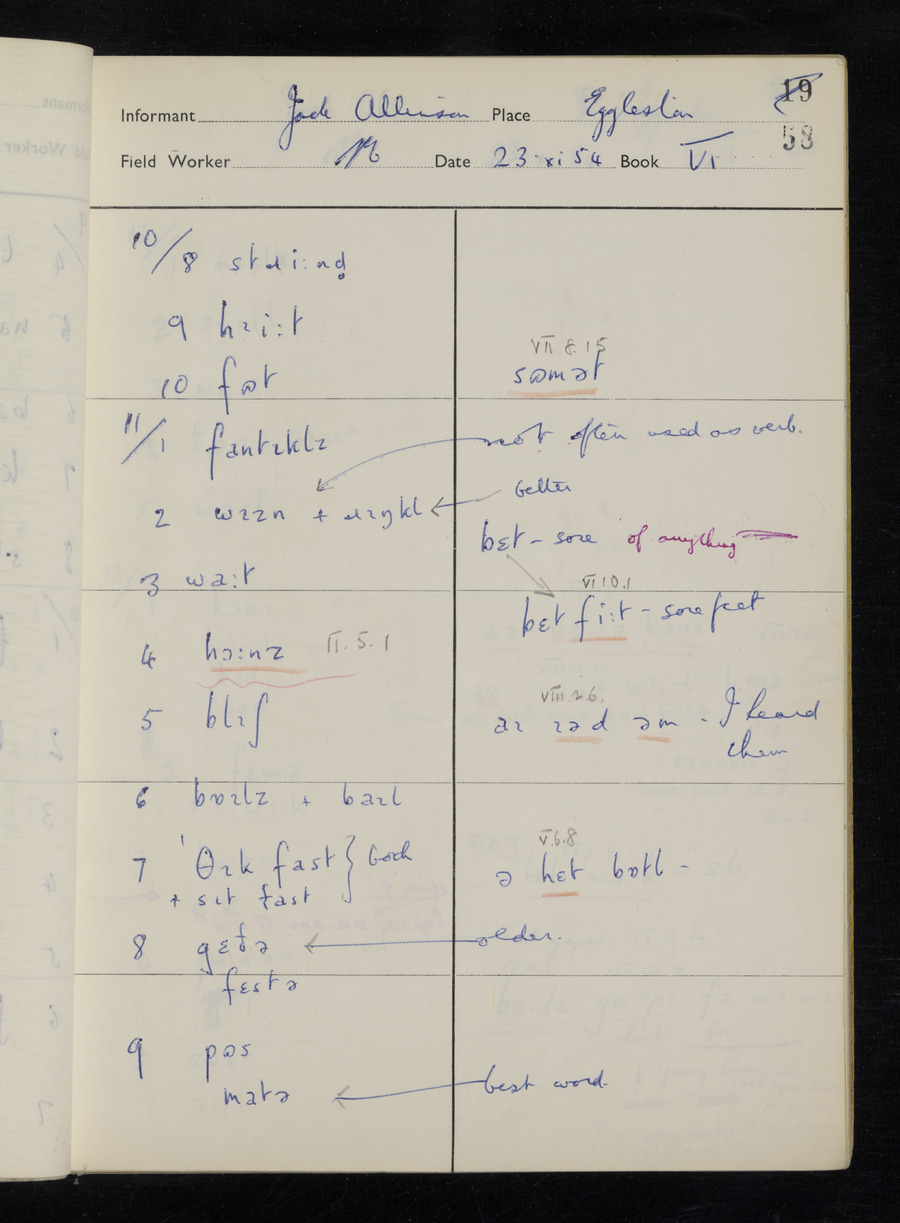 Informant Jack Allinson Place Eggleston 19
53
Field Worker Date 23.xi 54 Book VI
10/8 stɹi:nd̥
9 hɹi:t
10 fɷt
VII.8.15
sɷmət
11/1 fantɪklz
not often used as verb.
2 + ɹɪŋkl
better
bɛt - sore of anything
3 wa:t
VI 10.1
bɛt fi:t - sore feet
4 hɔ:nz II.5.1
5 blɪʃ
VIII.2.6.
aɪ ɪəd əm - I heard
them
6 bɒɪlz + baɪl
7 'θɪk fast } both
+ sɪt fast
V.6.8
ə hɛt bɒtl -
8 gɛðə
older.
fɛstə
9 pɷs
matə
best word.